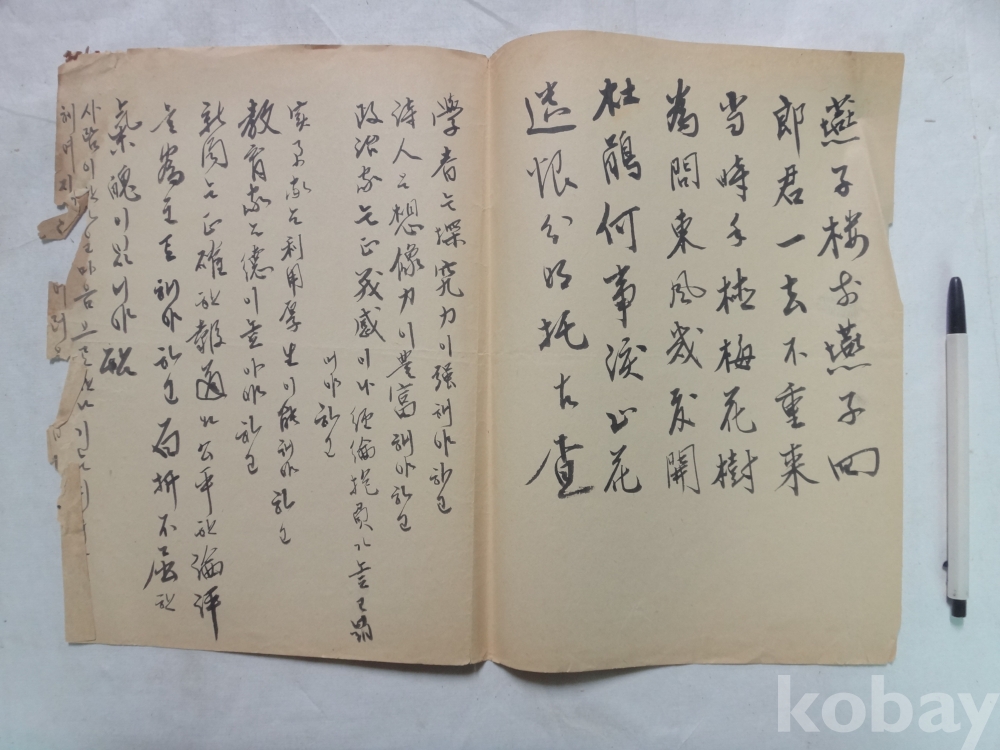 燕子楼前燕子回
郎君一去不重来
当時手植梅花樹
為問東風幾度開
杜鵑何事淚山花
遺恨分明托古査
學者는探究力이强해야하고
詩人은想像力이豊富해야하고
政治家는正義感이나経倫抱負가높고밝
아야하고
実業家는利用厚生이能해야하고
教育家는德이높아야하고
新聞은正確한報道와公平한論評
을為主로해야하고百折不屈한
氣魄이있어야
사람이란 마음으로
kobay